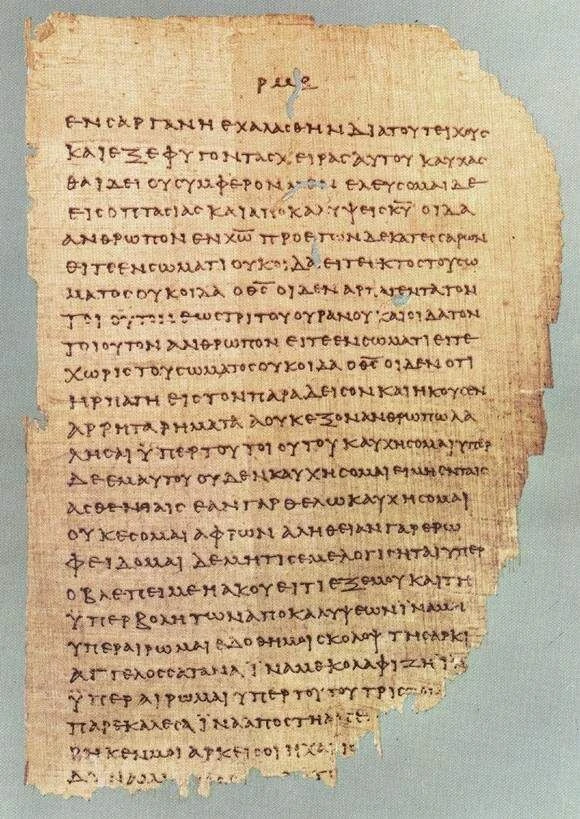 ρμε
ΕΝ CΑΡΓΑΝΗ ΕΧΑΛΑCΘΗΝ ΔΙΑ ΤΟΥ ΤΕΙΧΟΥC
ΚΑΙ ΕΞΕΦΥΓΟΝ ΤΑC ΧΕΙΡΑC ΑΥΤΟΥ ΚΑΥΧΑC
ΘΑΙ ΔΕΙ ΟΥ CΥΜΦΕΡΟΝ ΕΛΕΥCΟΜΑΙ ΔΕ
ΕΙC ΟΠΤΑCΙΑC ΚΑΙ ΑΠΟΚΑΛΥΨΕΙC Κ̅Υ̅ ΟΙΔΑ
ΑΝΘΡΩΠΟΝ ΕΝ Χ̅Ω̅ ΠΡΟ ΕΤΩΝ ΔΕΚΑΤΕCCΑΡΩΝ
ΕΙΤΕ ΕΝ CΩΜΑΤΙ ΟΥΚ ΟΙΔΑ ΕΙΤΕ ΙΚΤΟC ΤΟΥ CΩ
ΜΑΤΟC ΟΥΚ ΟΙΔΑ Ο Θ̅C̅ ΟΙΔΕΝ ΑΡΠΑΓΕΝΤΑ ΤΟΝ
ΤΟΙΟΥΤΟΝ ΕΩC ΤΡΙΤΟΥ ΟΥΡΑΝΟΥ ΚΑΙ ΟΙΔΑ ΤΟΝ
ΤΟΙΟΥΤΟΝ ΑΝΘΡΩΠΟΝ ΕΙΤΕ ΕΝ CΩΜΑΤΙ ΕΙΤΕ
ΧΩΡΙC ΤΟΥ CΩΜΑΤΟC ΟΥΚ ΟΙΔΑ Ο Θ̅C̅ ΟΙΔΕΝ ΟΤΙ
ΗΡΠΑΓΗ ΕΙC ΤΟΝ ΠΑΡΑΔΕΙCΟΝ ΚΑΙ ΗΚΟΥCΕΝ
ΑΡΡΗΤΑ ΡΗΜΑΤΑ Α ΟΥΚ ΕΞΟΝ ΑΝΘΡΩΠΩ ΛΑ
ΛΗCΑΙ ΫΠΕΡ ΤΟΥ ΤΟΙΟΥΤΟΥ ΚΑΥΧΗCΟΜΑΙ ΥΠΕΡ
ΔΕ ΕΜΑΥΤΟΥ ΟΥΔΕΝ ΚΑΥΧΗCΟΜΑΙ ΕΙ ΜΗ ΕΝ ΤΑΙC
ΑCΘΕΝΙΑΙC ΕΑΝ ΓΑΡ ΘΕΛΩ ΚΑΥΧΗCΟΜΑΙ
ΟΥΚ ΕCΟΜΑΙ ΑΦΡΩΝ ΑΛΗΘΕΙΑΝ ΓΑΡ ΕΡΩ
ΦΕΙΔΟΜΑΙ ΔΕ ΜΗ ΤΙC ΕΜΕ ΛΟΓΙCΗΤΑΙ ΥΠΕΡ
Ο ΒΛΕΠΕΙ ΜΕ Η ΑΚΟΥΕΙ ΤΙ ΕΞ ΕΜΟΥ ΚΑΙ ΤΗ
ΫΠΕΡΒΟΛΗ ΤΩΝ ΑΠΟΚΑΛΥΨΕΩΝ ΪΝΑ ΜΗ
ΥΠΕΡΑΙΡΩΜΑΙ ΕΔΟΘΗ ΜΟΙ CΚΟΛΟΨ ΤΗ CΑΡΚΙ
ΑΓΓΕΛΟC CΑΤΑΝΑ ΪΝΑ ΜΕ ΚΟΛΑΦΙΖΗ ΪΝΑ
ΫΠΕΡΑΙΡΩΜΑΙ ΥΠΕΡ ΤΟΥΤΟΥ ΤΡΙC
ΠΑΡΕΚΑΛΕCΑ ΪΝΑ ΑΠΟCΤΗ
ΡΗΚΕΝ ΜΟΙ ΑΡΚΕΙ CΟΙ Η ΧΑΡΙC